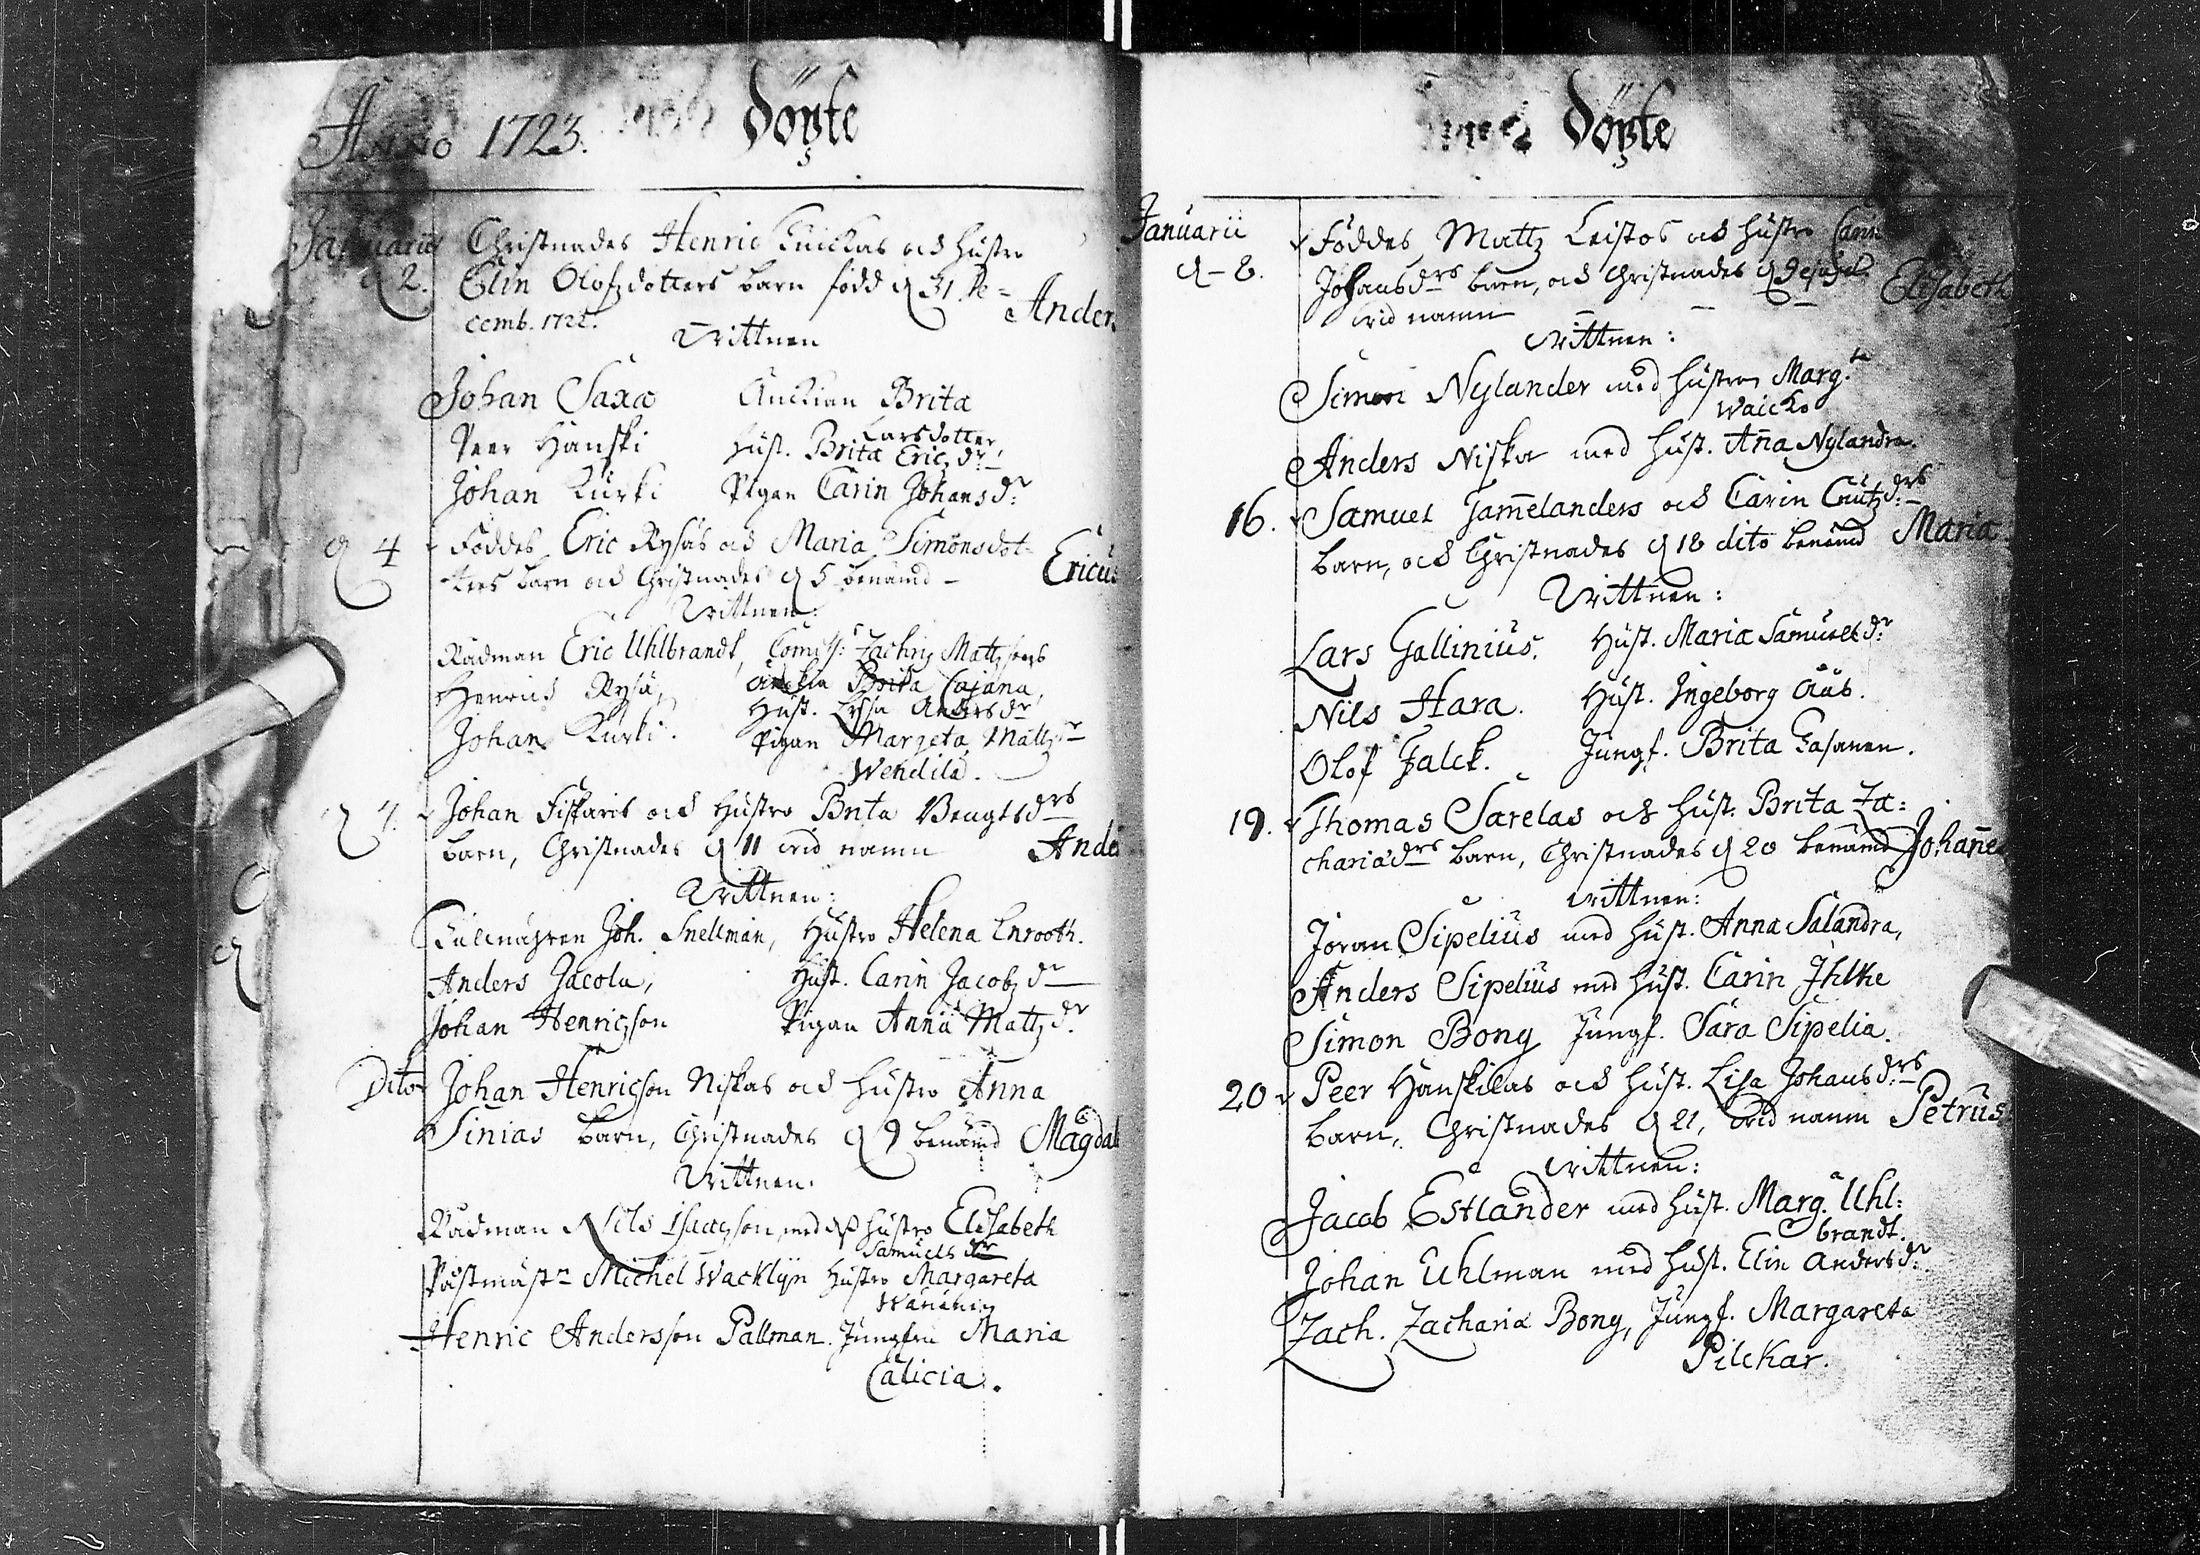 Anno 1723. Döpte
Januarii Christnades Henric Kuickas och hustro
d 2. Elin Olofzdotters barn född d 31 De=
cemb. 1722. Anders
Wittnen
Johan Saxa Änckian Brita
Larsdotter
Peer Hanski hust. Brita Eric.dr
Johan Kurki Pigan Carin Johansdr
d 4 Föddes Eric Rysäs och Maria Simonsdot=
ters barn och Christnades d 5 benämd - Ericus
Wittnen:
Rådman Eric Uhlbrandt, Comiss: Zachris Mattzsons
Henrich Rysä, änckia Brita Cajana,
Hust. Lysa Andersdr
Johan Kurki. Pigan Margeta Mattzdr
Wendila.
d 7. Johan Fiskaris och hustro Brita Bengtsdrs
barn, Christnades d 11 wid namn Ande
Wittnen:
Joh. Snellman, Hustro Helena Enrooth.
Anders Jacola, Hust. Carin Jacobzdr
Johan Henricsson Pigan Anna Mattzdr
Dito Johan Henricson Niskas och hustro Anna
Sinias barn, Christnades d 9 benämd Magdal
Wittnen.
Rådman Nils Isacsson, med dess hustro Elisabeth
Samuelsdr
Påstmästr Michel Wacklijn hustro Margareta
Henric Andersson Pallman. Jungfru Maria
Calicia.
Döpte
Januarii Föddes Mattz Leistos och hustro Carin
d - 8. Johansdrs barn, och Christnades d 9
wid namn Elisabeth
Wittnen:
Simon Nylander med hustron Marg.ta
Waicko
Anders Niska med hust. Aña Nylandra.
16. Samuel Gam̃elanders och Carin Cnutzdrs
barn, och Christnades d 18 dito benämd Maria
Wittnen:
Lars Gallinius. Hust. Maria Samuelsdr
Nils Hara. Hust. Ingeborg Åås.
Olof Falck. Jungf. Brita Hasanen.
19. Thomas Sarelas och hust. Brita Za=
chariædrs barn, Christnades d 20 benämd Johañes
Wittnen:
Joran Sipelius med hust. Anna Salandra,
Anders Sipelius med hust. Carin Ihlke
Simon Bong Jungf. Sara Sipelia.
20 Peer Hanskilas och hust. Lisa Johansdrs
barn, Christnades d 21, wid namn Petrus
Wittnen:
Jacob Estlander med hust. Marg.a Uhl=
brandt.
Johan Uhlman med hust. Elin Andersdr
Zach. Zachariæ Bong, Jungf. Margareta
Pilckar.